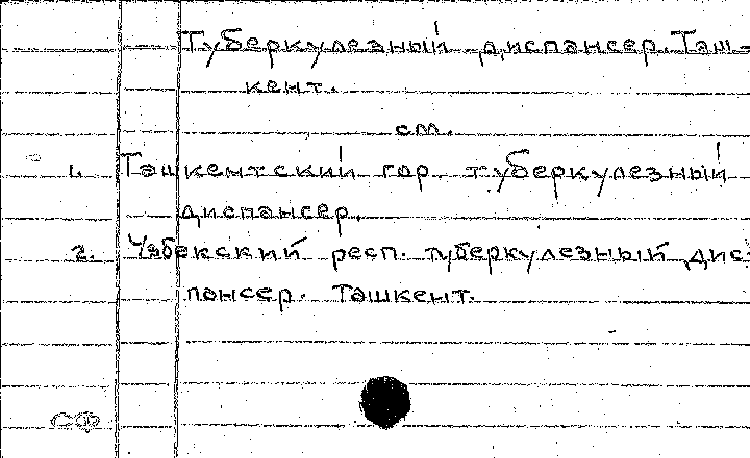 Туберкулезный диспансер. Таш-
кент.
см.
1. Ташкентский гор. туберкулезный
диспансер.
2. Узбекский респ. туберкулезный дис-
пансер. Ташкент.
СФ